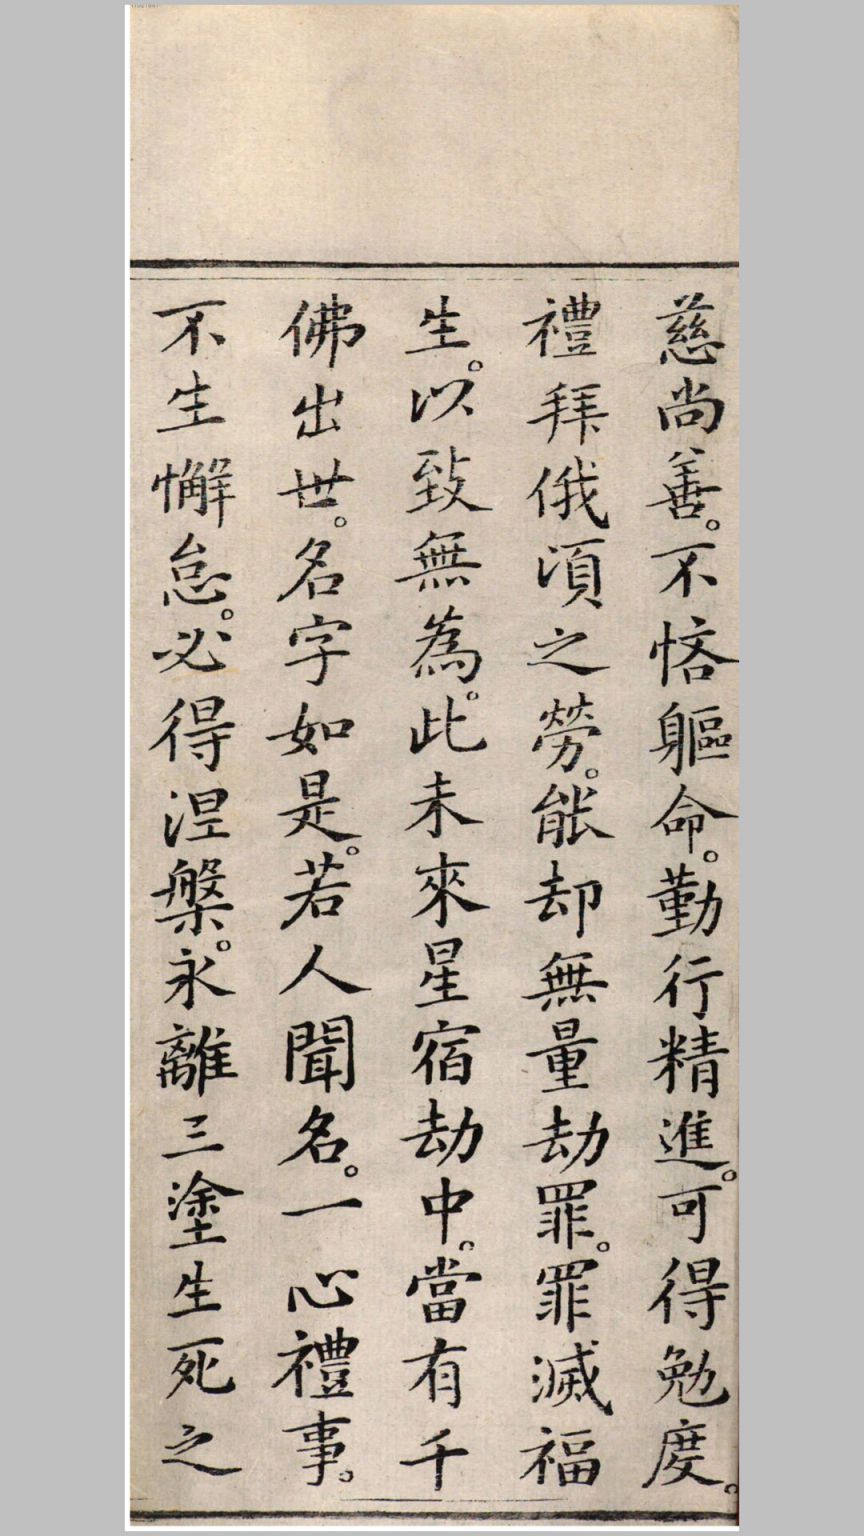 慈尚善。不悋軀命。勤行精進。可得勉度。
禮拜俄頃之勞。能却無量劫罪。罪滅福
生。以致無為。此未來星宿劫中。當有千
佛出世。名字如是。若人聞名。一心禮事。
不生懈怠。必得涅槃。永離三塗生死之